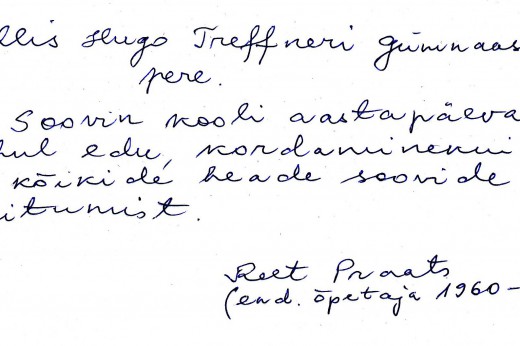 llis Hugo Treffneri Gümnaas
pere.
Soovin kooli aastapäeva
hul edu, kordaminekui
kõikide heade soovide
itumist.
Reet Praats
(end. õpetaja 1960-